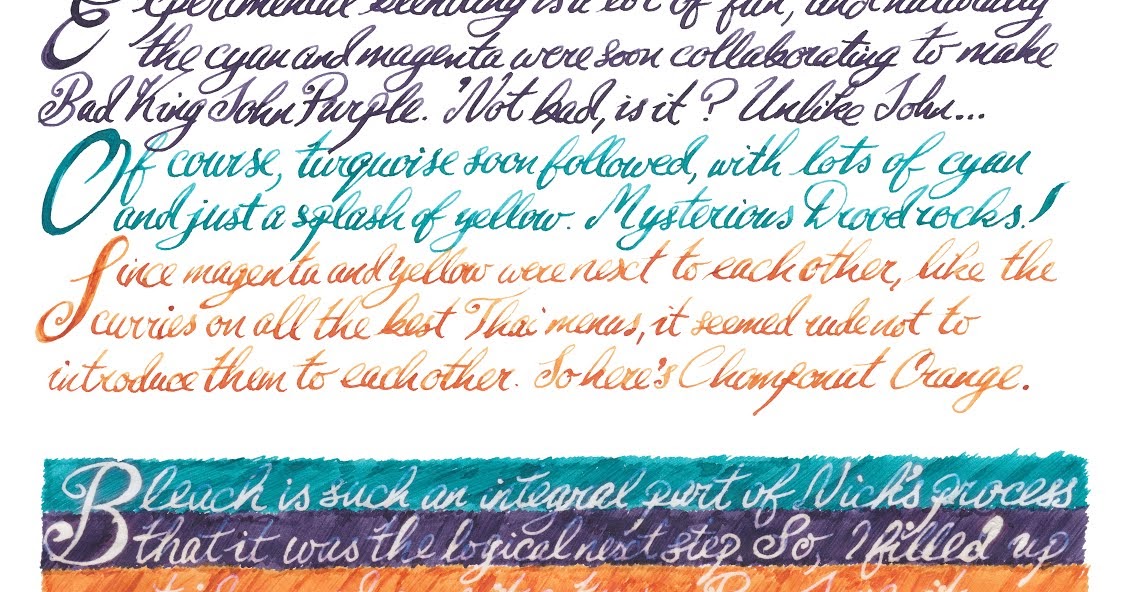 Experimental blending is a lot of fun, and naturally
the cyan and magenta were soon collaborating to make
Bad King John Purple. 'Not bad, is it? Unlike John...
Of course, turquoise soon followed, with lots of cyan
and just a splash of yellow. Mysterious Drood rocks!
Since magenta and yellow were next to each other, like the
curries on all the best Thai menus, it seemed rude not to
introduce them to each other. So here's Chomponut Orange.
Bleach is such an integral part of Nick's process
that it was the logical next step. So, I filled up